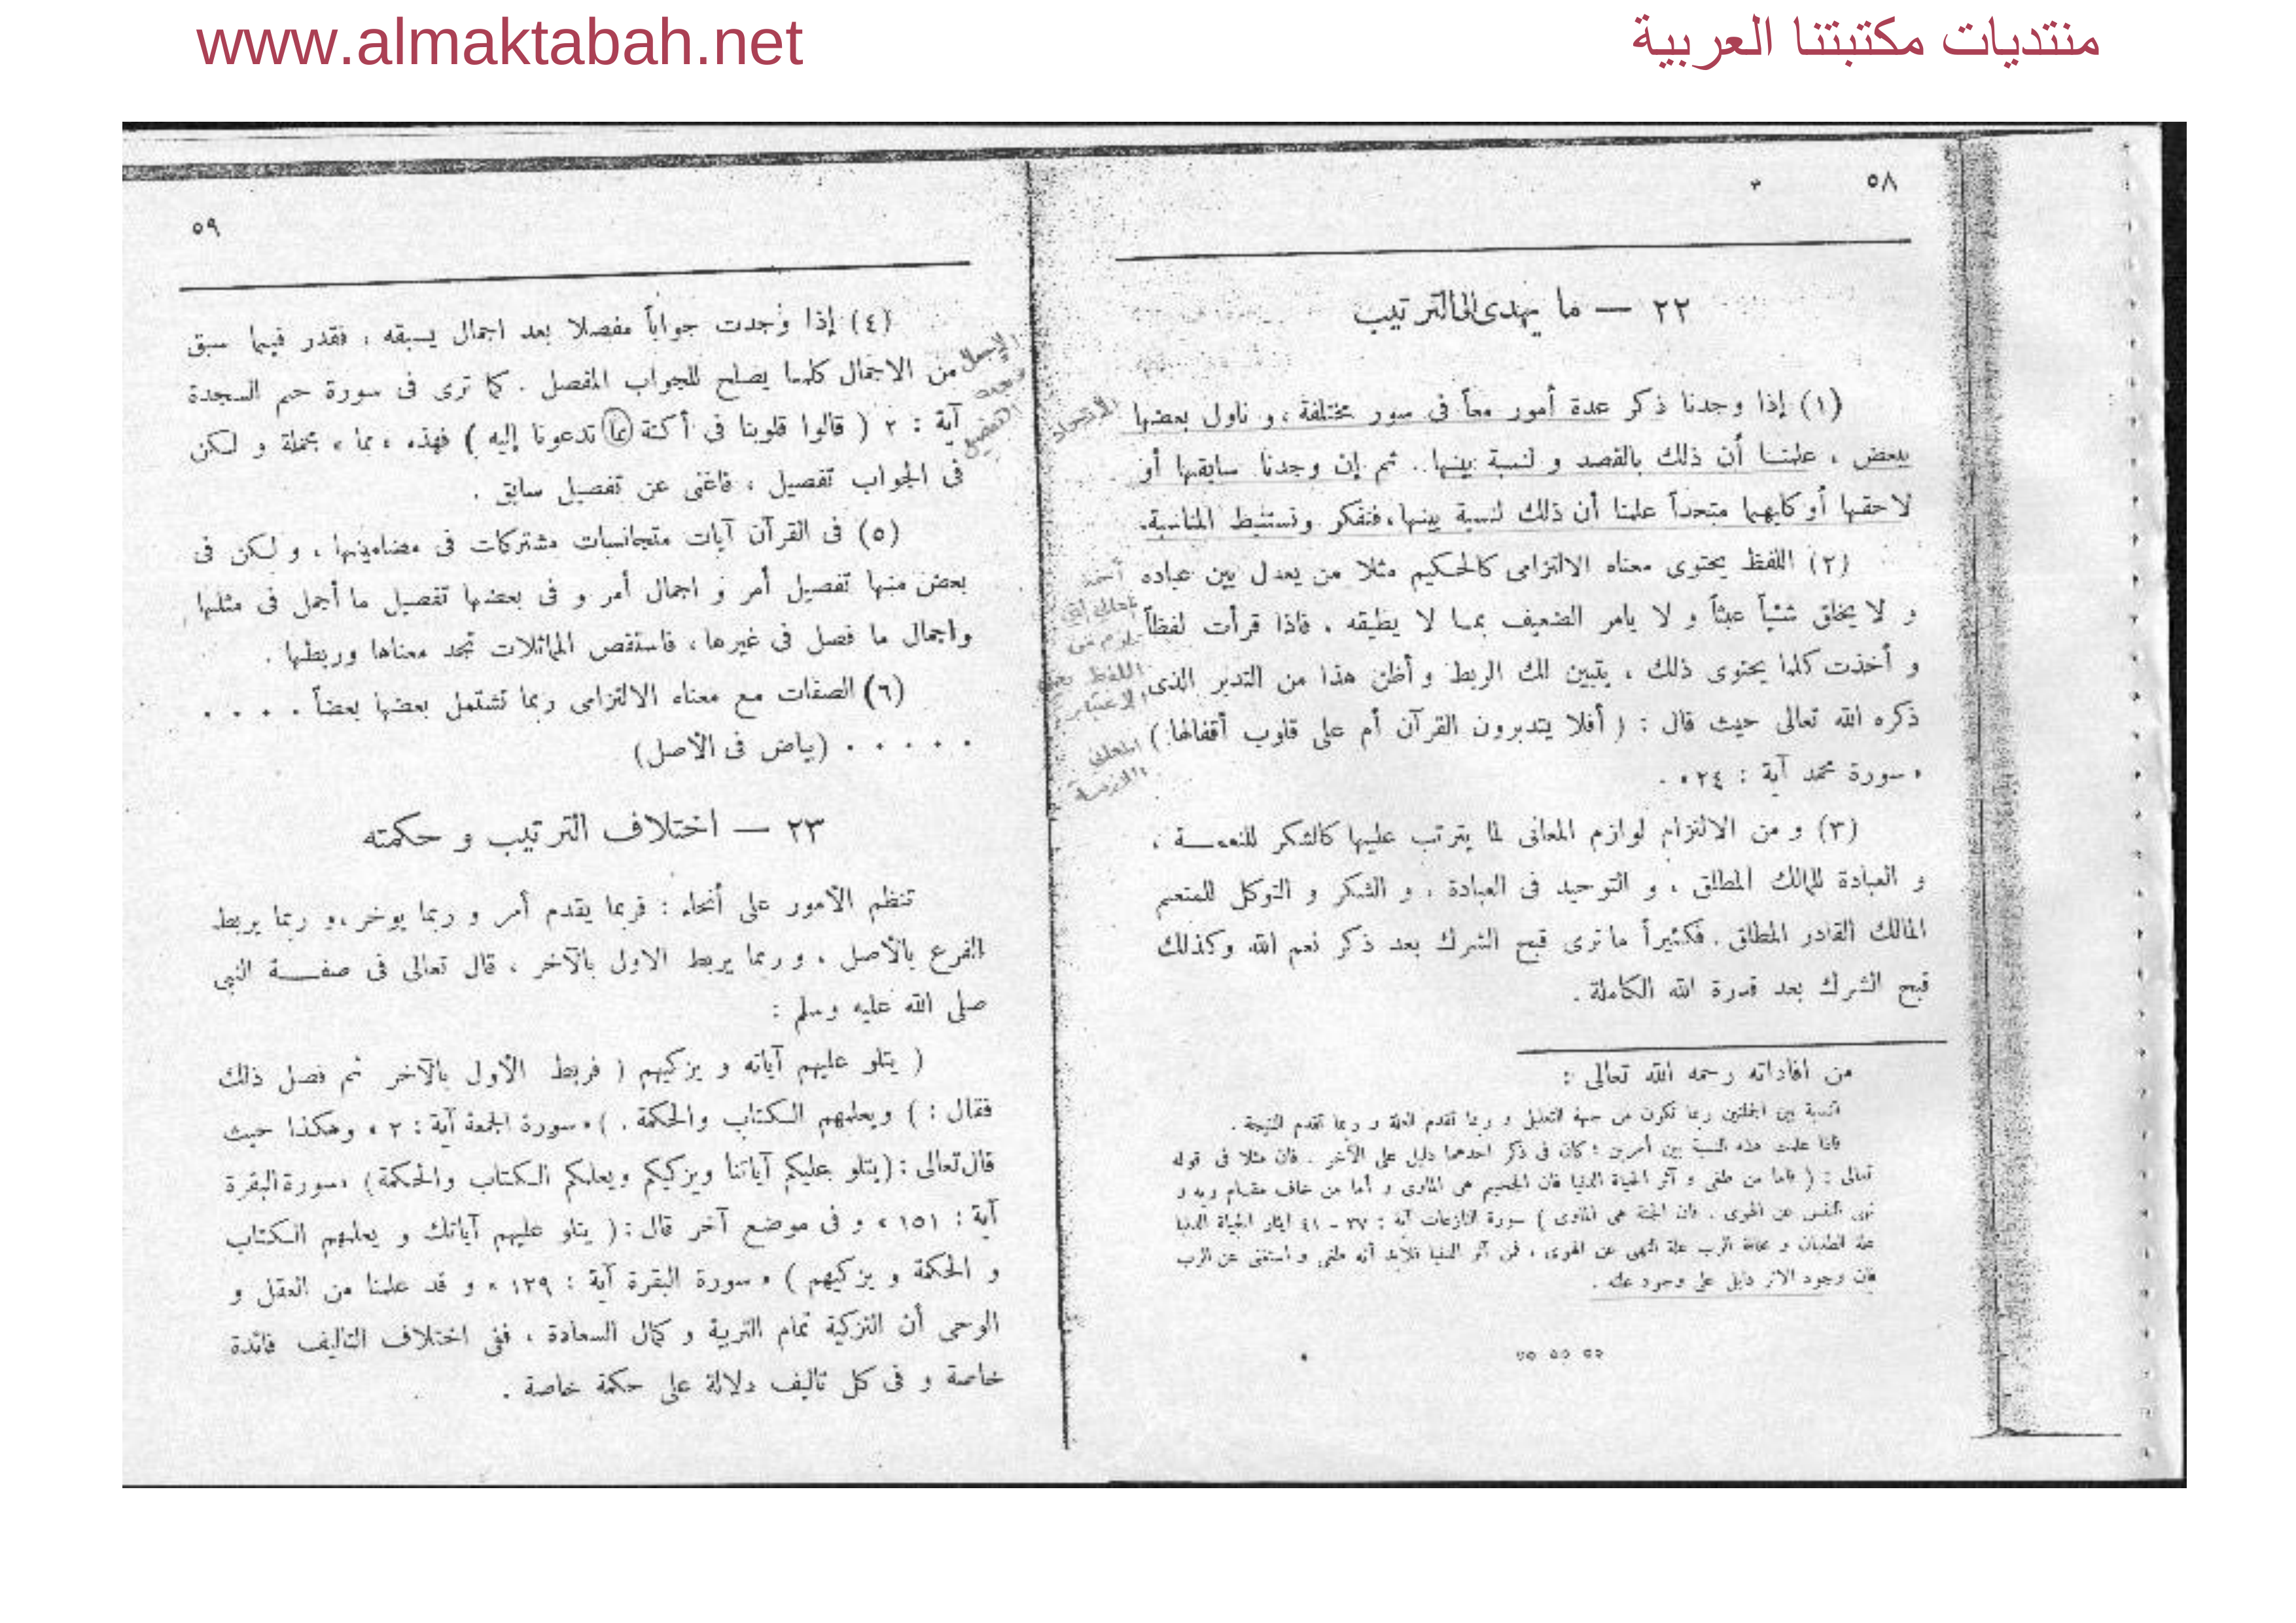 www.almaktabah.net
منتديات مكتبتنا العربية
٥٨
٢٢ — ما يهدى الى الترتيب
(١) إذا وجدنا ذكر عدة أمور معاً فى سور مختلفة ، و ناول بعضها
ببعض ، علمنا أن ذلك بالقصد و لنسبة بينها . ثم إن وجدنا سابقها أو
لاحقها أو كليهما متحداً علمنا أن ذلك لنسبة بينها ، فنفكر ونستنبط المناسبة .
(٢) اللفظ يحتوى معناه الالتزامى كالحكيم مثلا من يعدل بين عباده
و لا يخلق شئياً عبثاً و لا يامر الضعيف بما لا يطيقه . فاذا قرأت لفظاً
و أخذت كلما يحتوى ذلك ، يتبين لك الربط و أظن هذا من التدبر الذى
ذكره الله تعالى حيث قال : ( أفلا يتدبرون القرآن أم على قلوب أقفالها . )
« سورة محمد آية : ٢٤ » .
(٣) و من الالتزام لوازم المعانى لما يترتب عليها كالشكر للنعمة ،
و العبادة للمالك المطلق ، و التوحيد فى العبادة ، و الشكر و التوكل للمنعم
المالك القادر المطلق . فكثيراً ما ترى قبح الشرك بعد ذكر نعم الله وكذلك
قبح الشرك بعد قدرة الله الكاملة .
من افاداته رحمه الله تعالى :
النسبة بين الجملتين ربما تكون من جهة التعليل و ربما تقدم العلة و ربما تقدم النتيجة .
فاذا علمت هذه النسبة بين أمرين ؛ كان فى ذكر احدهما دليل على الآخر . فان مثلا فى قوله
تعالى : ( فاما من طغى و آثر الحياة الدنيا فان الجحيم هى المأوى و أما من خاف مقام ربه و
نهى النفس عن الهوى . فان الجنة هى المأوى ) سورة النازعات آية : ٣٧ - ٤١ ايثار الحياة الدنيا
علة الطغيان و مخافة الرب علة النهى عن الهوى ، فمن آثر الدنيا فلابد أنه طغى و استغنى عن الرب
فان وجود الاثر دليل على وجود علته .
الاتحاد
المعانى
٥٩
(٤) إذا وجدت جواباً مفصلا بعد اجمال يسبقه ، فقدر فيما سبق
من الاجمال كلما يصلح للجواب المفصل . كما ترى فى سورة حم السجدة
آية : ٢ ( قالوا قلوبنا فى أكنة مما تدعونا إليه ) فهذه « مما » مجملة و لكن
فى الجواب تفصيل ، فاغنى عن تفصيل سابق .
(٥) فى القرآن آيات متجانسات مشتركات فى مضامينها ، و لكن فى
بعض منها تفصيل أمر و اجمال أمر و فى بعضها تفصيل ما أجمل فى مثلها
واجمال ما فصل فى غيرها ، فاستقص المماثلات تجد معناها وربطها .
(٦) الصفات مع معناه الالتزامى ربما تشتمل بعضها بعضاً . . . .
. . . . . (بياض فى الأصل)
٢٣ — اختلاف الترتيب و حكمته
تنظم الأمور على أنحاء : فربما يقدم أمر و ربما يوخر ، و ربما يربط
الفرع بالأصل ، و ربما يربط الاول بالآخر ، قال تعالى فى صفة النبى
صلى الله عليه وسلم :
( يتلو عليهم آياته و يزكيهم ( فربط الأول بالآخر ثم فصل ذلك
فقال : ) ويعلمهم الكتاب والحكمة . ) « سورة الجمعة آية : ٢ » وهكذا حيث
قال تعالى : (يتلو عليكم آياتنا ويزكيكم ويعلمكم الكتاب والحكمة) «سورة البقرة
آية : ١٥١ » و فى موضع آخر قال : ( يتلو عليهم آياتك و يعلمهم الكتاب
و الحكمة و يزكيهم ) « سورة البقرة آية : ١٢٩ » و قد علمنا من العقل و
الوحى أن التزكية تمام التربية و كمال السعادة ، ففى اختلاف التاليف فائدة
خاصة و فى كل تاليف دلالة على حكمة خاصة .
الإجمال
بعده
التفصيل